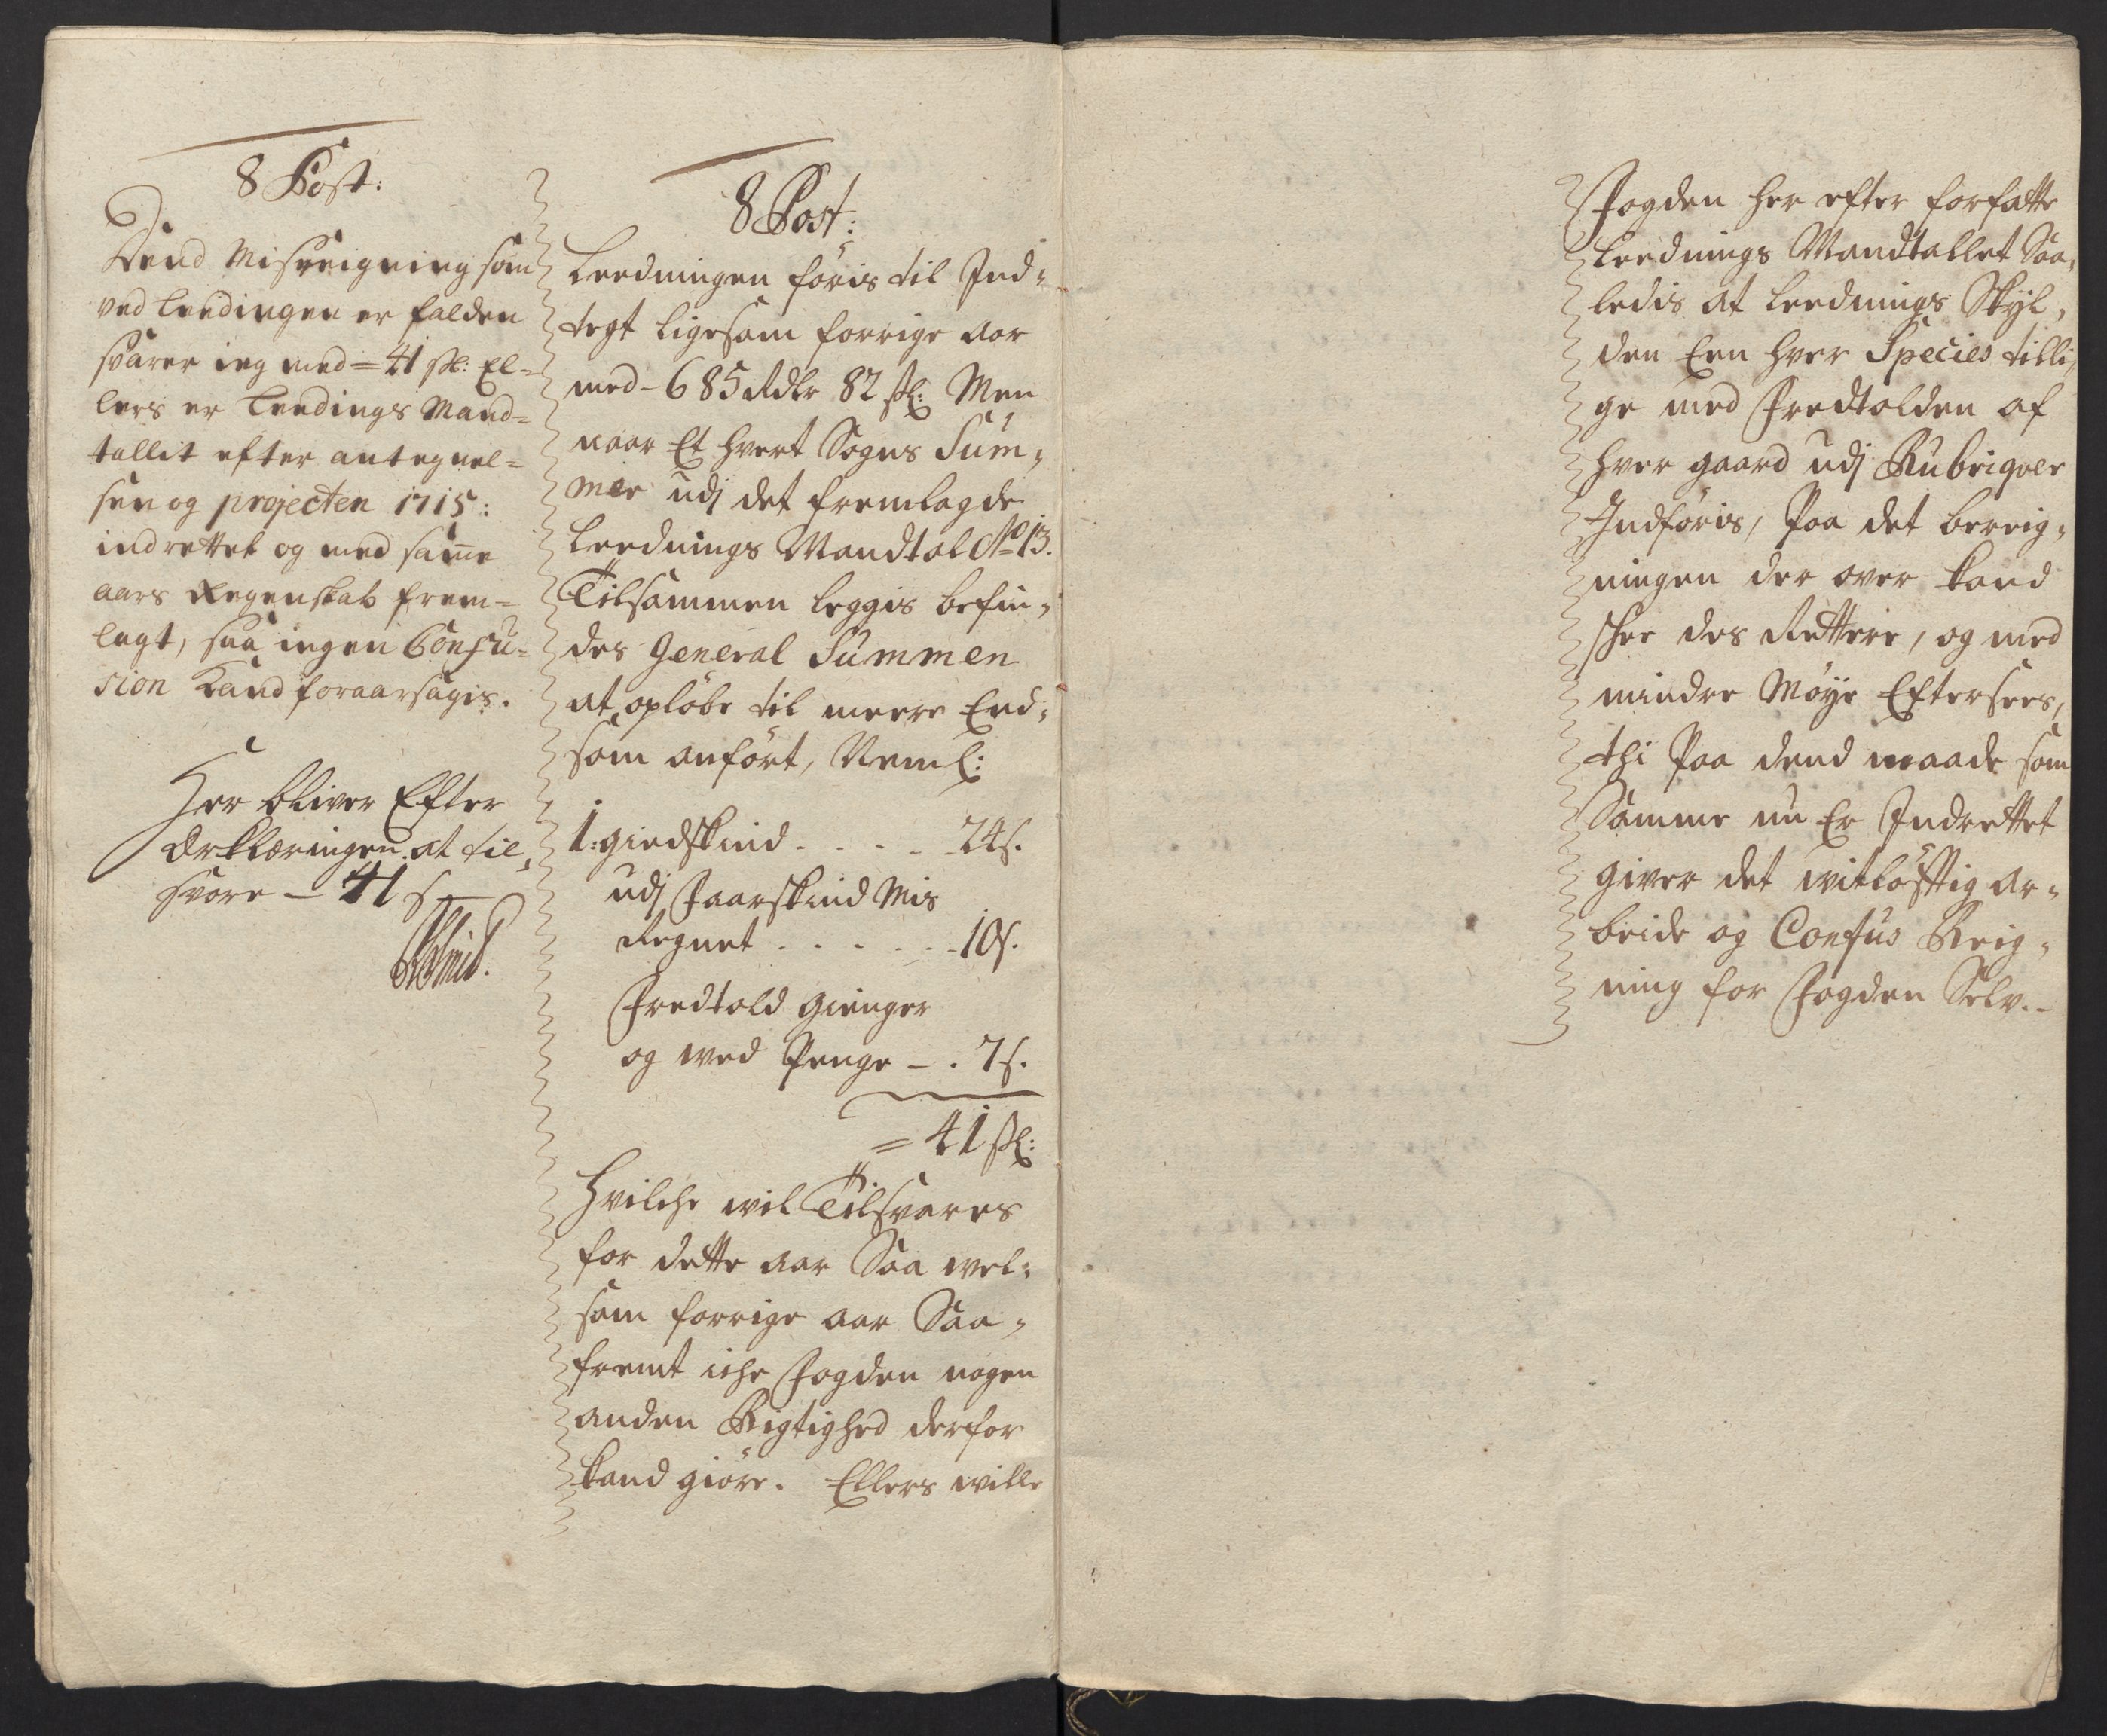 8 Post:
Dend Misreigning som
ved Leedingen er falden
svarer ieg med = 41 sk: El=
lers er Leedings Mand=
tallit efter antegnel=
sen og projecten 1715:
indrettet og med samme
aars Regenskab frem=
lagt, saa ingen Confu=
sion Kand foraarsagis.
Her bliver Efter
Erklæringen at til,
svare – 41 s
8 Post:
Leedningen föris til Ind=
tegt ligesom forrige aar
med – 685 Rdlr 82 sk: Men
naar Et hvert Sogns Sum,
mer udj det fremlagde
Leednings Mandtal No 13.
Tilsammen leggis befin,
des General Summen
at opløbe til meere End,
som anfört, Neml:
1: giedskind . . . . 24 s.
udj Faarskind Mis
Regnet . . . . . . 10 s.
Fredtold Gienger
og wed Penge – . 7 s.
= 41 sk:
Hvilche wil Tilsvares
for dette aar Saa wel,
som forrige aar Saa,
fremt iche Fogden nogen
anden Rigtighed derfor
kand giöre. Ellers wille
Fogden her efter forfatte
Leednings Mandtallet Saa,
ledis at Leednings Skyl,
den Een hver Species tilli,
ge med Fredtolden af
hver gaard udj Rubriqver
Indföris, Paa det bereig,
ningen der over kand
skee des Rettere, og med
mindre Möye Eftersees,
thi Paa dend maade som
Samme nu Er Indrettet
giver det witlöfftig ar,
beide og Confus Reig,
ning for Fogden Selv. –